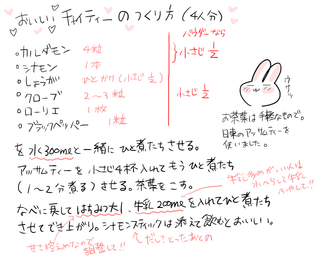 おいしいチャイティーのつくり方(4人分)
パウダーなら
・カルダモン 4粒
・シナモン 1本
} 小さじ 1/2
・しょうが ひとかけ(小さじ 1/2)
・クローブ 2〜3粒
小さじ 1/2
・ローリエ 1枚
・ブラックペッパー 1粒
お茶葉は手軽なもので。
日東のアッサムティーを
使いました。
を水300mlと一緒にひと煮たちさせる。
アッサムティーを小さじ4杯入れてもうひと煮たち
(1〜2分煮る)させる。茶葉をこす。
牛乳多めがいい人は
水へらして牛乳
ふやして!!
なべに戻してはちみつ大1、牛乳200mlを入れてひと煮たち
させてでき上がり。シナモンスティックは添えて飲むとおいしい。
甘さ控えめなので
調整して!!
だしにとったあとの